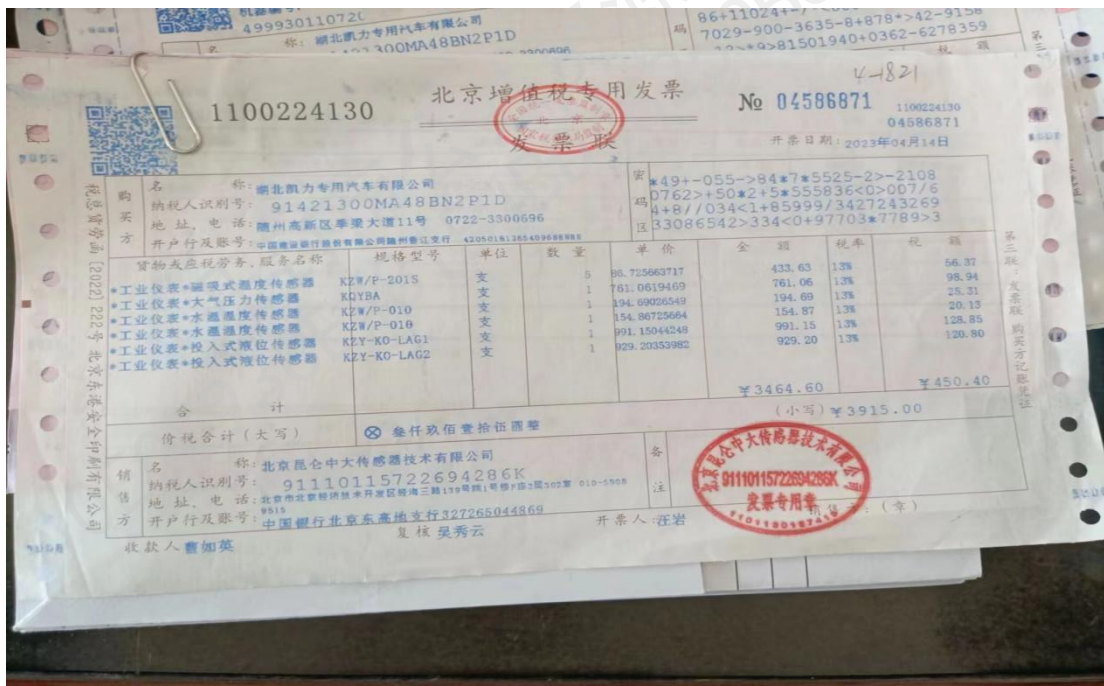 499930110720
称: 湖北凯力专用汽车有限公司
86+11024+
7029-900-3635-8+878*>42-9158
*9>81501940+0362-6278359
税 额
4-1821
1100224130
北京增值税专用发票
发票联
№ 04586871
1100224130
04586871
开票日期: 2023年04月14日
税总货劳函〔2022〕222号 北京东港安全印刷有限公司
购买方
名 称: 湖北凯力专用汽车有限公司
纳税人识别号: 91421300MA48BN2P1D
地 址、电 话: 随州高新区季梁大道11号 0722-3300696
开户行及账号: 中国建设银行股份有限公司随州香江支行
密码区
*49+-055->84*7*5525-2>-2108
0762>+50*2+5*555836<0>0D7/6
4+8//034<1+85999/3427243269
33086542>334<0+97703*7789>3
货物或应税劳务、服务名称 规格型号 单位 数 量 单 价 金 额 税率 税 额
*工业仪表*磁吸式温度传感器 KZW/P-201S 支 5 86.725663717 433.63 13% 56.37
*工业仪表*大气压力传感器 KQYBA 支 1 761.0619469 761.06 13% 98.94
*工业仪表*水温温度传感器 KZW/P-010 支 1 194.69026549 194.69 13% 25.31
*工业仪表*水温温度传感器 KZW/P-010 支 1 154.86725664 154.87 13% 20.13
*工业仪表*投入式液位传感器 KZY-KO-LAG1 支 1 991.15044248 991.15 13% 128.85
*工业仪表*投入式液位传感器 KZY-KO-LAG2 支 1 929.20353982 929.20 13% 120.80
合 计 ¥3464.60 ¥450.40
价税合计(大写) ⊗ 叁仟玖佰壹拾伍圆整 (小写) ¥3915.00
第三联:发票联 购买方记账凭证
销售方
名 称: 北京昆仑中大传感器技术有限公司
纳税人识别号: 91110115722694286K
地 址、电 话: 北京市北京经济技术开发区经海三路139号院1号楼F座2层302室 010-5908
9515
开户行及账号: 中国银行北京东高地支行327265044869
备注
北京昆仑中大传感器技术有限公司
91110115722694286K
发票专用章
收款人 曹如英
复核 吴秀云
开票人:汪岩
销售方:(章)